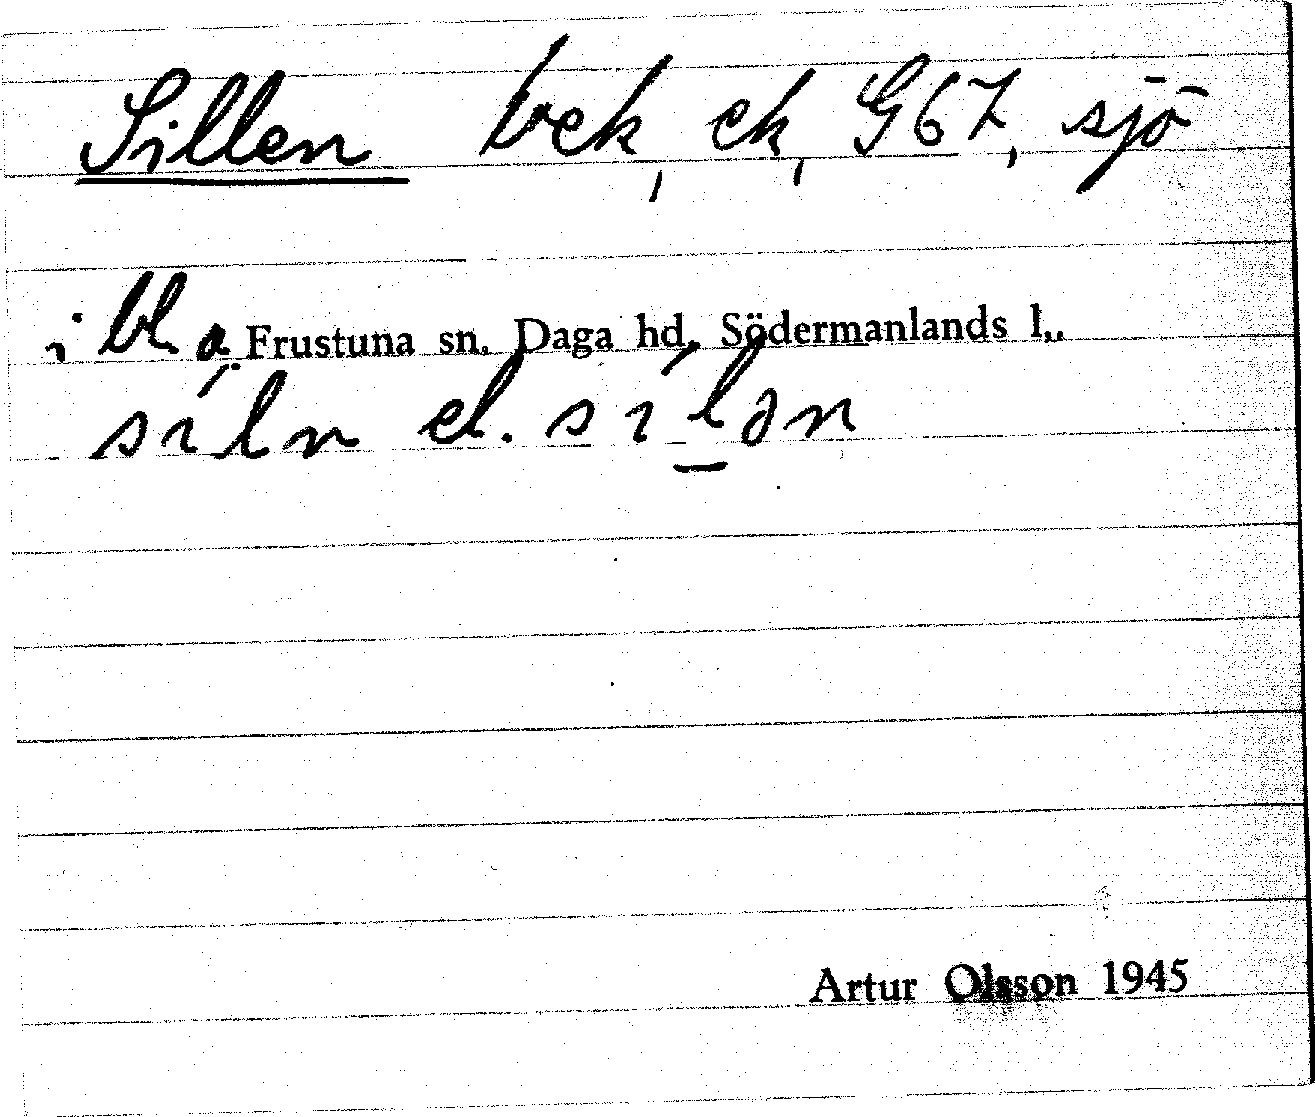 Sillen bek, ek, G67, sjö
i bl. a. Frustuna sn. Daga hd. Södermanlands l.,
síln el. sílən
Artur Olsson 1945